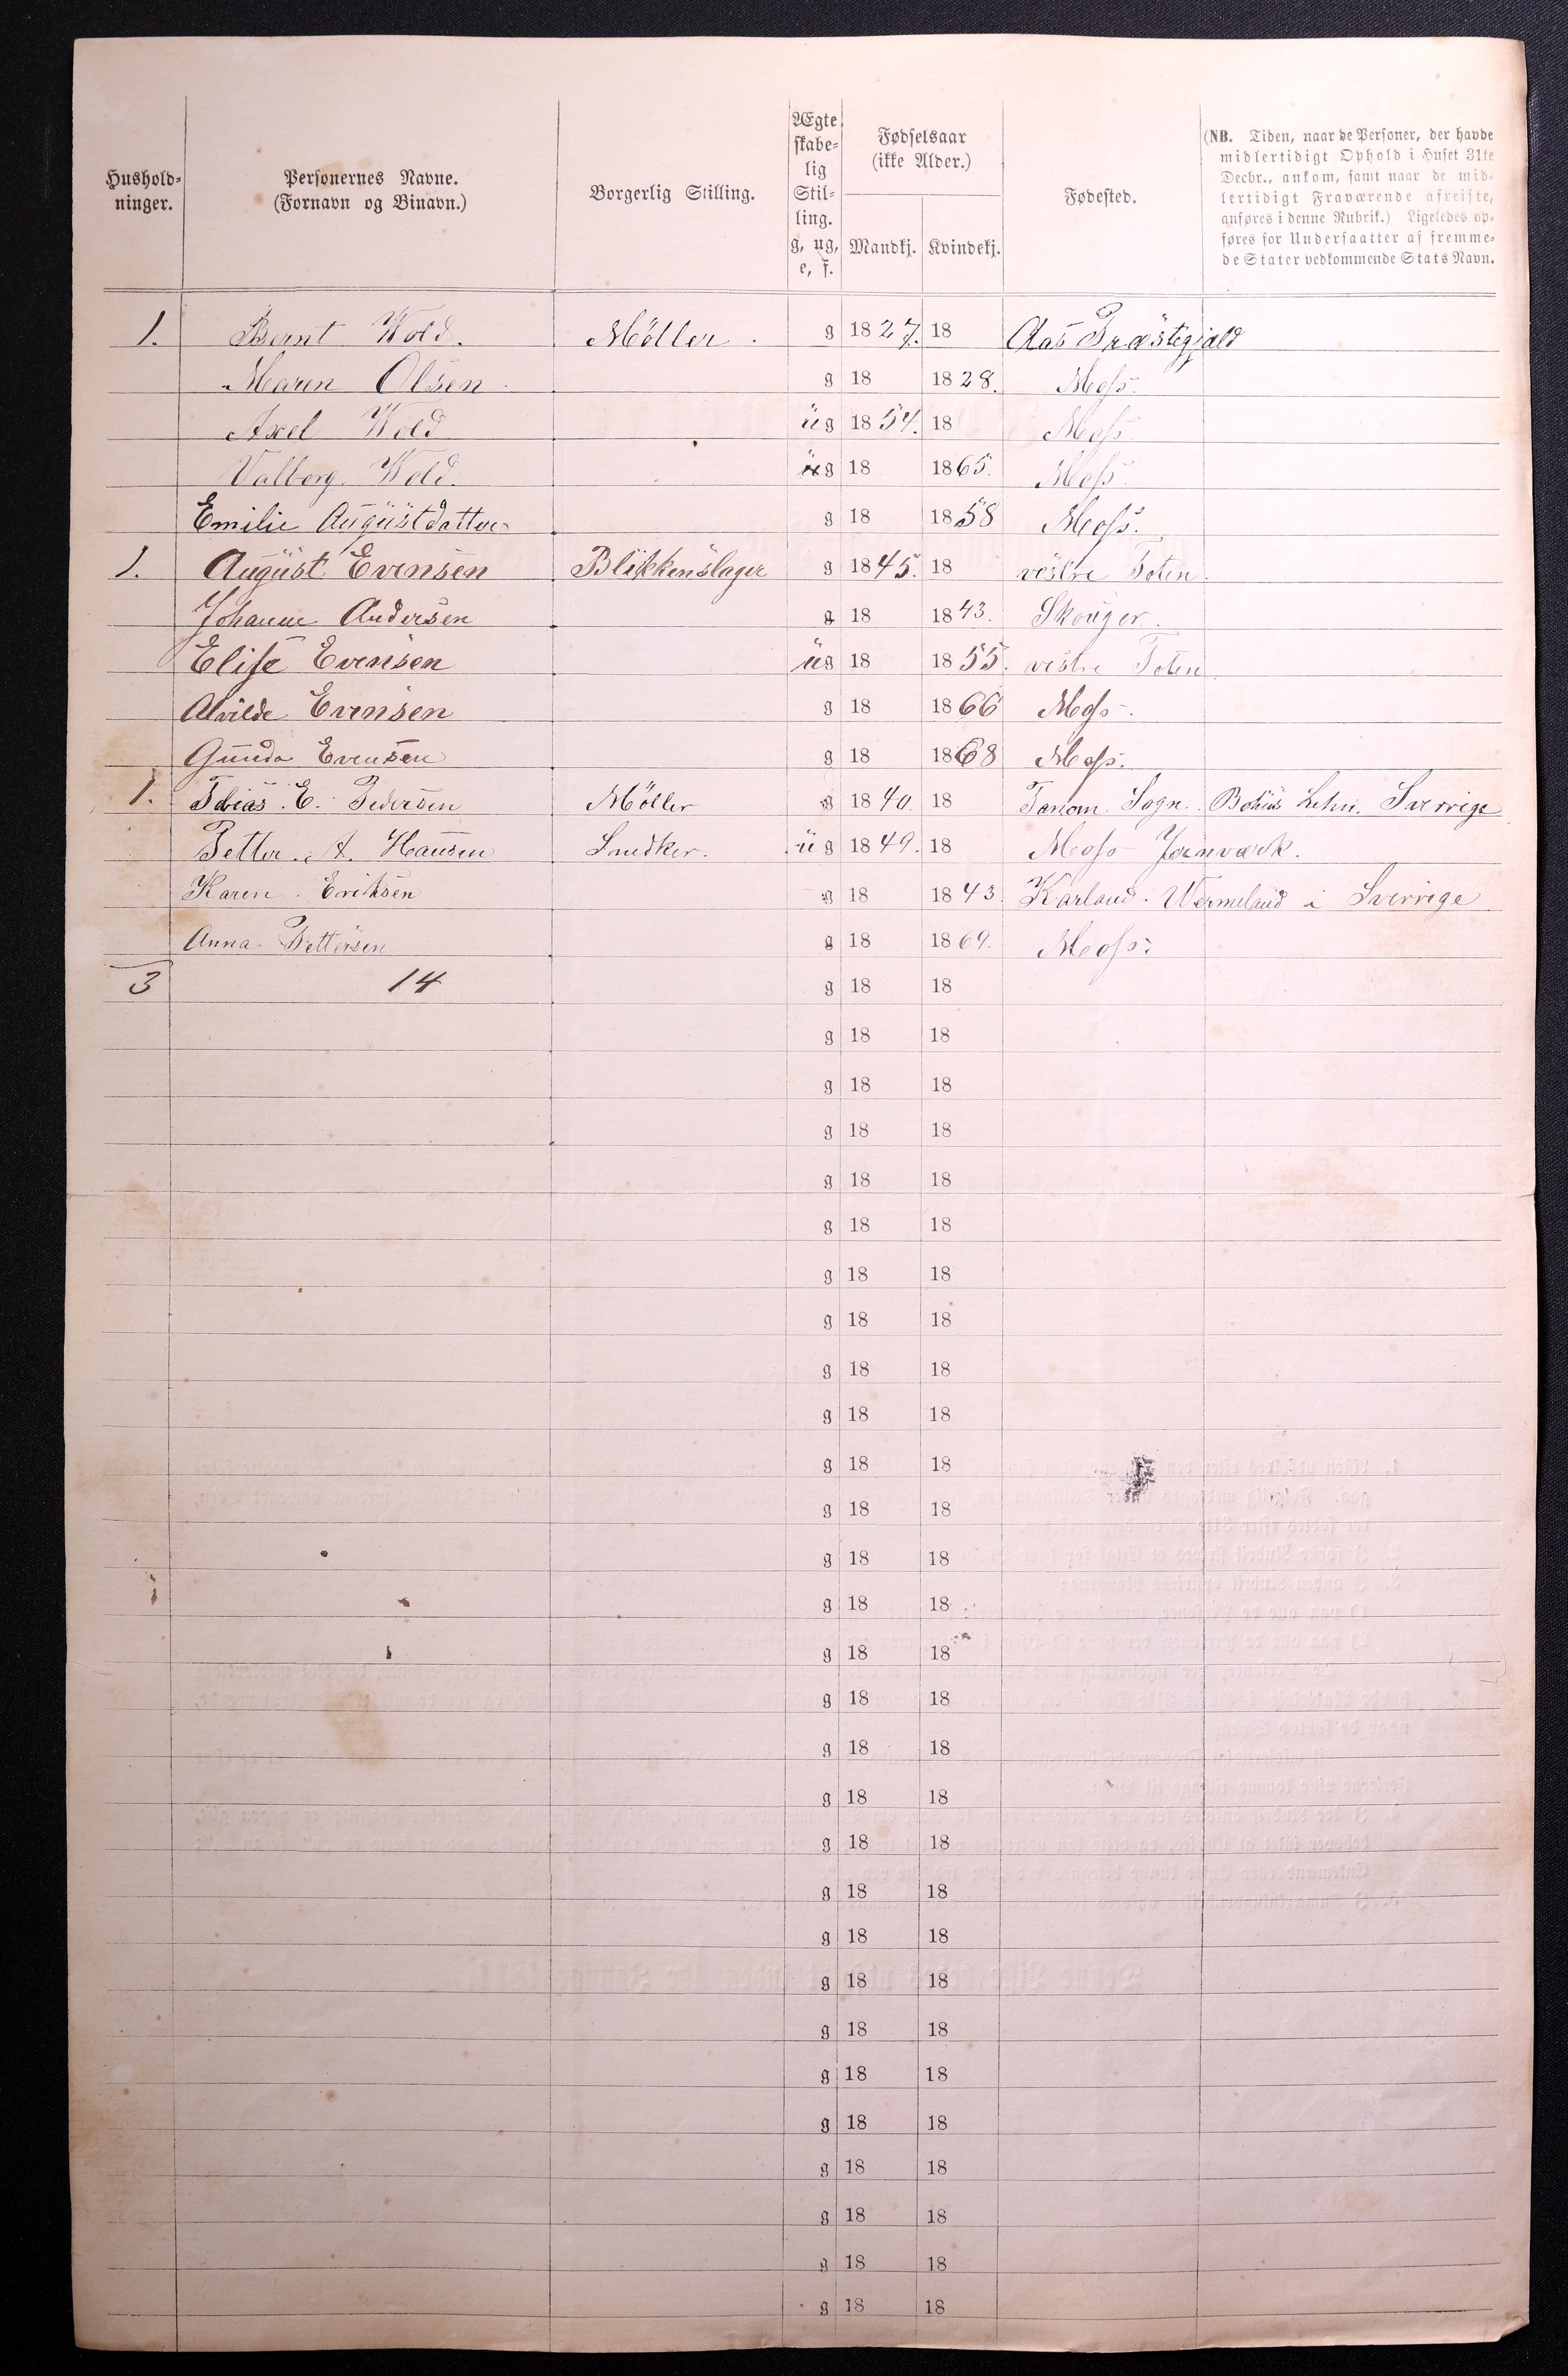 Hushold-
ninger.
Personernes Navne.
(Fornavn og Binavn.)
Borgerlig Stilling.
Ægte
skabe-
lig
Stil-
ling.
g, ug,
e, f.
Fødselsaar
(ikke Alder.)
Mandkj. Kvindekj.
Fødested.
(NB. Tiden, naar de Personer, der havde
midlertidigt Ophold i Huset 31te
Decbr., ankom, samt naar de mid-
lertidigt Fraværende afreiste,
anføres i denne Rubrik.) Ligeledes op-
føres for Undersaatter af fremme-
de Stater vedkommende Stats Navn.
1. Bernt Wold. Møller. g 1827. 18 Aas Præstegjæld
Maren Olsen. g 18 1828. Moss.
Axel Wold ug 1854. 18 Moss
Valborg Wold. ug 18 1865. Moss.
Emilie Augustdatter g 18 1858 Moss.
1. August Evensen Blikkenslager g 1845. 18 vestre Toten.
Johanne Andersen g 18 1843. Skouger.
Elise Evensen ug 18 1855. vestre Toten
Alvilde Evensen g 18 1866 Moss.
Gunda Evensen g 18 1868 Moss.
1. Tobias E. Pedersen Møller g 1840. 18 Tanom Sogn. Bohus Lehn. Sverrige
Petter A. Hansen ug 1849. 18 Moss Jernværk.
Karen Eriksen g 18 1843. Karland. Wermeland i Sverrige
Anna Pettersen g 18 1869. Moss.
3 14 g 18 18
g 18 18
g 18 18
g 18 18
g 18 18
g 18 18
g 18 18
g 18 18
g 18 18
g 18 18
g 18 18
g 18 18
g 18 18
g 18 18
g 18 18
g 18 18
g 18 18
g 18 18
g 18 18
g 18 18
g 18 18
g 18 18
g 18 18
g 18 18
g 18 18
g 18 18
g 18 18
g 18 18
g 18 18